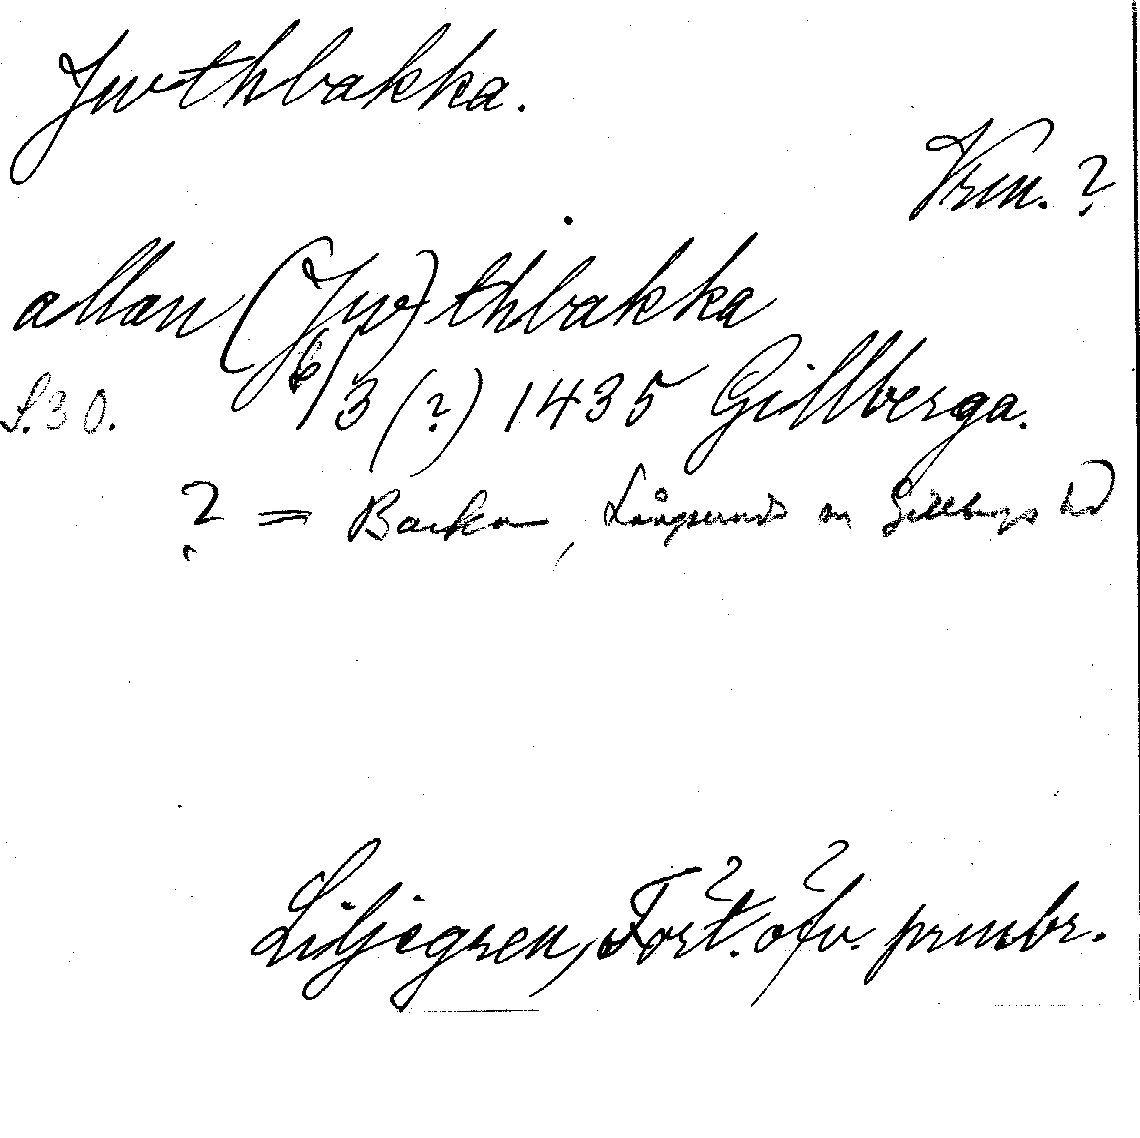 Jwthbakka.
Vrm. ?
allan (Jw)thbakka
S.30. 6/3 (?) 1435 Gillberga.
? = Backa, Långserud sn Gillbergs hd
Liljegren, Fört. öfv. prmbr.